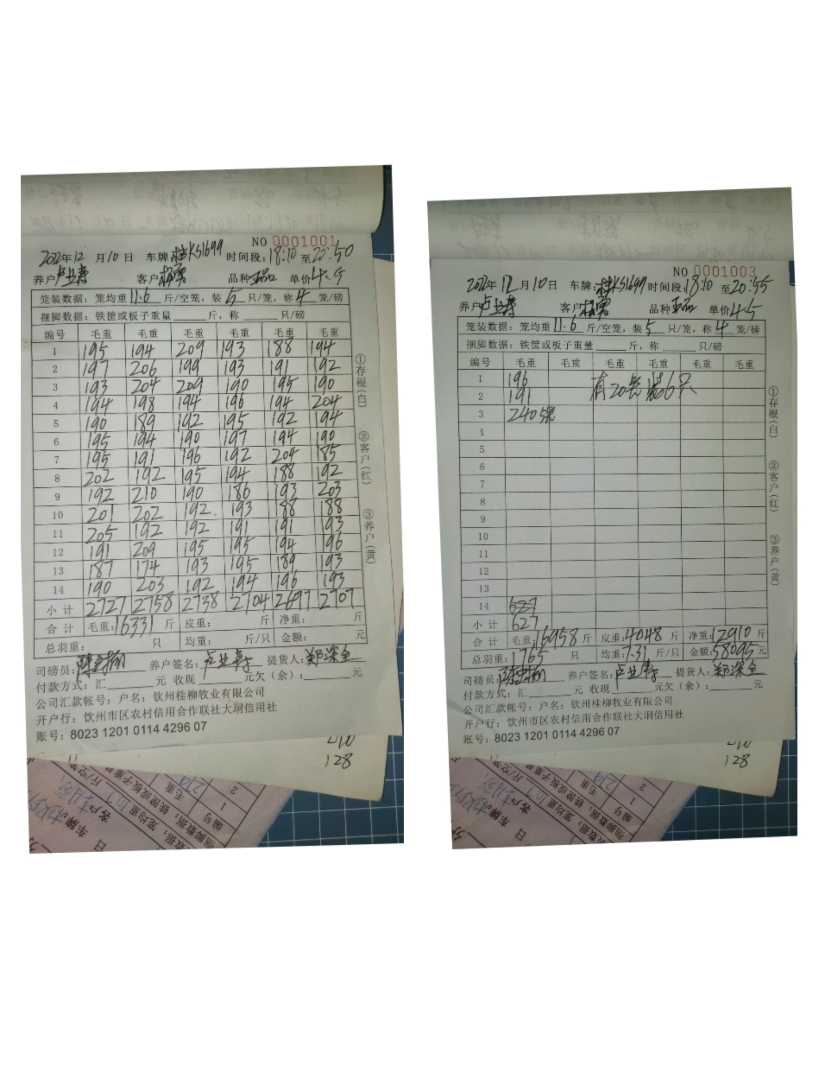 NO 0001001
2022年12月10日 车牌:桂KS1699 时间段:18:10至20:50
养户 客户 品种 单价4.5
笼装数据:笼均重11.6斤/空笼,装5只/笼,称4笼/磅
捆脚数据:铁筐或板子重量 斤,称 只/磅
编号 毛重 毛重 毛重 毛重 毛重 毛重
1 195 194 209 193 188 194
2 197 206 199 193 191 192
3 193 204 209 190 195 190
4 194 198 194 196 194 204
5 190 189 192 195 192 194
6 195 194 190 197 194 190
7 195 191 196 192 204 185
8 202 192 195 194 188 192
9 192 210 190 186 193 203
10 201 202 192 193 188 188
11 205 192 192 191 191 193
12 191 209 195 195 194 196
13 187 174 193 195 189 193
14 190 203 192 194 196 193
小计 2727 2758 2738 2704 2697 2707
合计 毛重:16331斤 皮重: 斤 净重: 斤
总羽重: 只 均重: 斤/只 金额: 元
司磅员: 养户签名: 提货人:郑深全
付款方式:汇 元 收现 元欠(余): 元
公司汇款帐号:户名:钦州桂柳牧业有限公司
开户行:饮州市区农村信用合作联社大垌信用社
账号:8023 1201 0114 4296 07
①存根(白)
②客户(红)
③养户(黄)
NO 0001003
2022年12月10日 车牌:桂KS1699 时间段:18:10至20:55
养户 客户 品种 单价4.5
笼装数据:笼均重11.6斤/空笼,装5只/笼,称4笼/磅
捆脚数据:铁筐或板子重量 斤,称 只/磅
编号 毛重 毛重 毛重 毛重 毛重 毛重
1 196
2 191 有20笼装6只
3 240 5笼
4
5
6
7
8
9
10
11
12
13
14 627
小计 627
合计 毛重:16958斤 皮重:4048斤 净重:12910斤
总羽重:1765只 均重:7.31斤/只 金额:58095元
司磅员: 养户签名: 提货人:郑深全
付款方式:汇 元 收现 元欠(余): 元
公司汇款帐号:户名:钦州桂柳牧业有限公司
开户行:饮州市区农村信用合作联社大垌信用社
账号:8023 1201 0114 4296 07
①存根(白)
②客户(红)
③养户(黄)
128
128